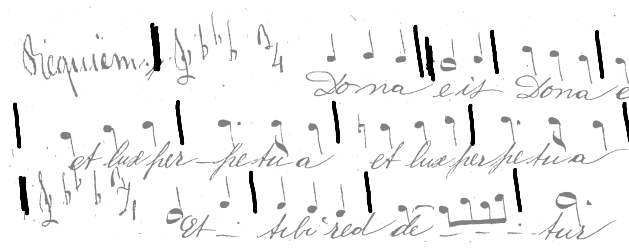 Requiem 3/4 Dona eis Dona e
et lux per-petua et lux perpetua
Et - tibi red de - - - tur